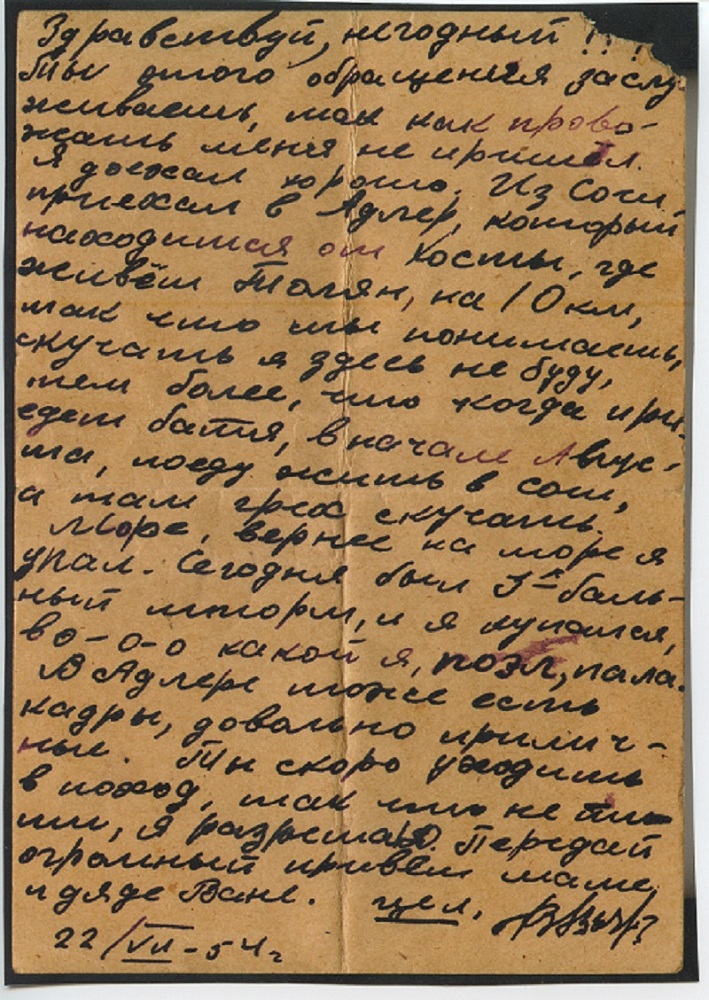 Здравствуй, негодный!!!
Ты этого обращения заслу
живаешь, так как прово-
жать меня не пришёл.
Я доехал хорошо. Из Сочи
приехал в Адлер, который
находится от Хосты, где
живёт Толян, на 10 км,
так что ты понимаешь,
скучать я здесь не буду,
тем более, что когда при-
едет батя, в начале Авгус-
та, поеду жить в Сочи,
а там грех скучать.
Море, вернее на море я
упал. Сегодня был 3-х баль-
ный шторм, и я купался,
во-о-о какой я, поэл, пала.
В Адлере тоже есть
кадры, довольно прилич-
ные. Ты скоро уходишь
в поход, так что не пи-
ши, я Передай
огромный привет маме
и дяде Ване. цел.
22/VII-54г